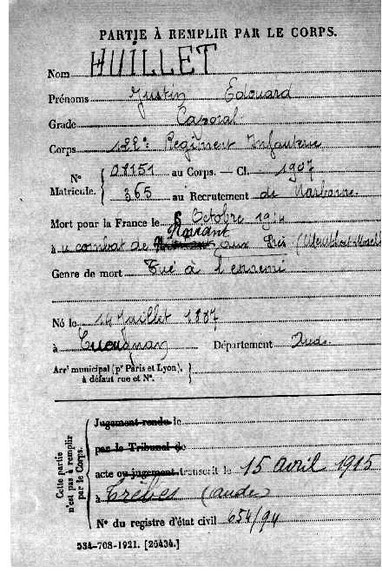 PARTIE À REMPLIR PAR LE CORPS.
Nom HUILLET
Prénoms Justin Edouard
Grade Caporal
Corps 122e Régiment Infanterie
N° Matricule. { 08151 au Corps. — Cl. 1907
365 au Recrutement de Narbonne
Mort pour la France le 8 Octobre 1914
au combat de aux Prés
Genre de mort Tué à l'ennemi
Né le 14 Juillet 1887
à Cucugnan Département Aude
Arrt municipal (pr Paris et Lyon), à défaut rue et N°.
Cette partie n'est pas à remplir par le Corps.
Jugement rendu le
par le Tribunal de
acte ou jugement transcrit le 15 avril 1915
à Trèbes (Aude)
N° du registre d'état civil 654/94
534-708-1921. [26434.]